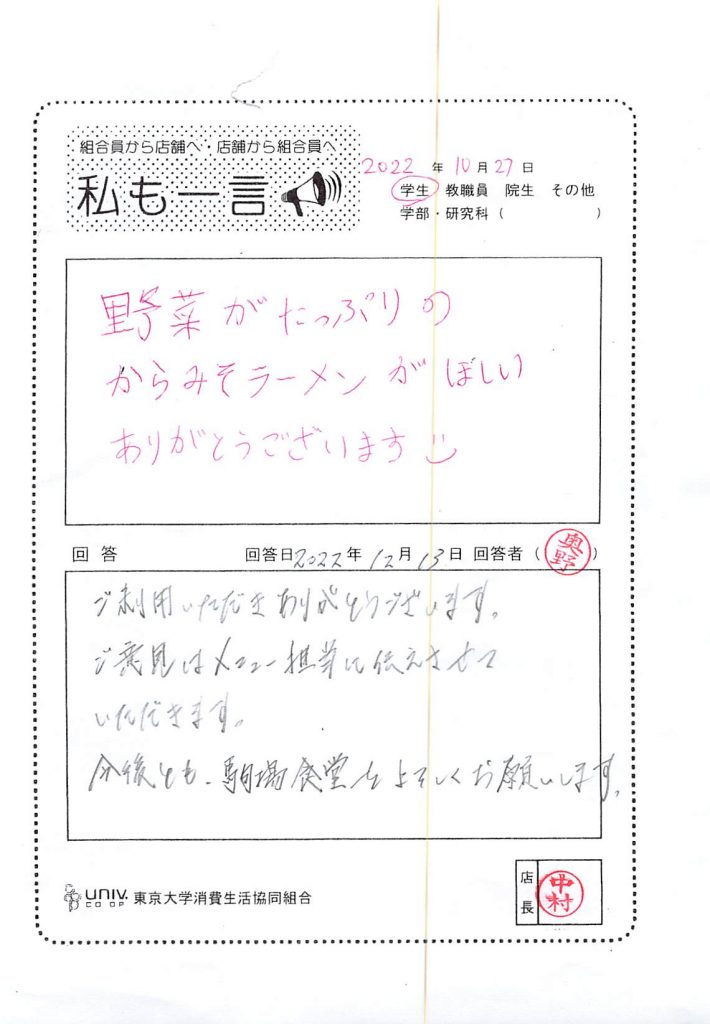 組合員から店舗へ・店舗から組合員へ
私も一言
2022年10月27日
学生 教職員 院生 その他
学部・研究科（ ）
野菜がたっぷりの
からみそラーメンがほしい
ありがとうございます
回答 回答日2022年12月13日 回答者（奥野）
ご利用いただきありがとうございます。
ご意見はメニュー担当に伝えさせて
いただきます。
今後とも、駒場食堂をよろしくお願いします。
UNIV. CO-OP 東京大学消費生活協同組合
店長 中村